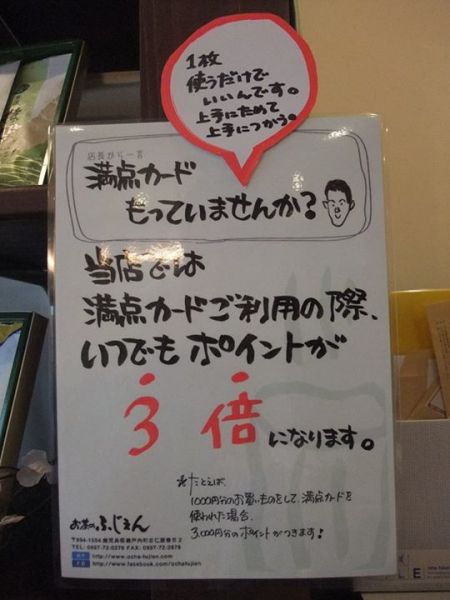 1枚
使うだけで
いいんです。
上手にためて
上手につかう。
店長から一言
満点カード
もっていませんか?
当店では
満点カードご利用の際、
いつでもポイントが
3倍になります。
*たとえば、
1000円分のお買いものをして、満点カードを
使われた場合、
3,000円分のポイントがつきます!
お茶のふじえん
〒894-1504 鹿児島県瀬戸内町古仁屋春日2
TEL: 0997-72-0279 FAX: 0997-72-2879
http://www.ocha-fujien.com
http://www.facebook.com/ochafujien